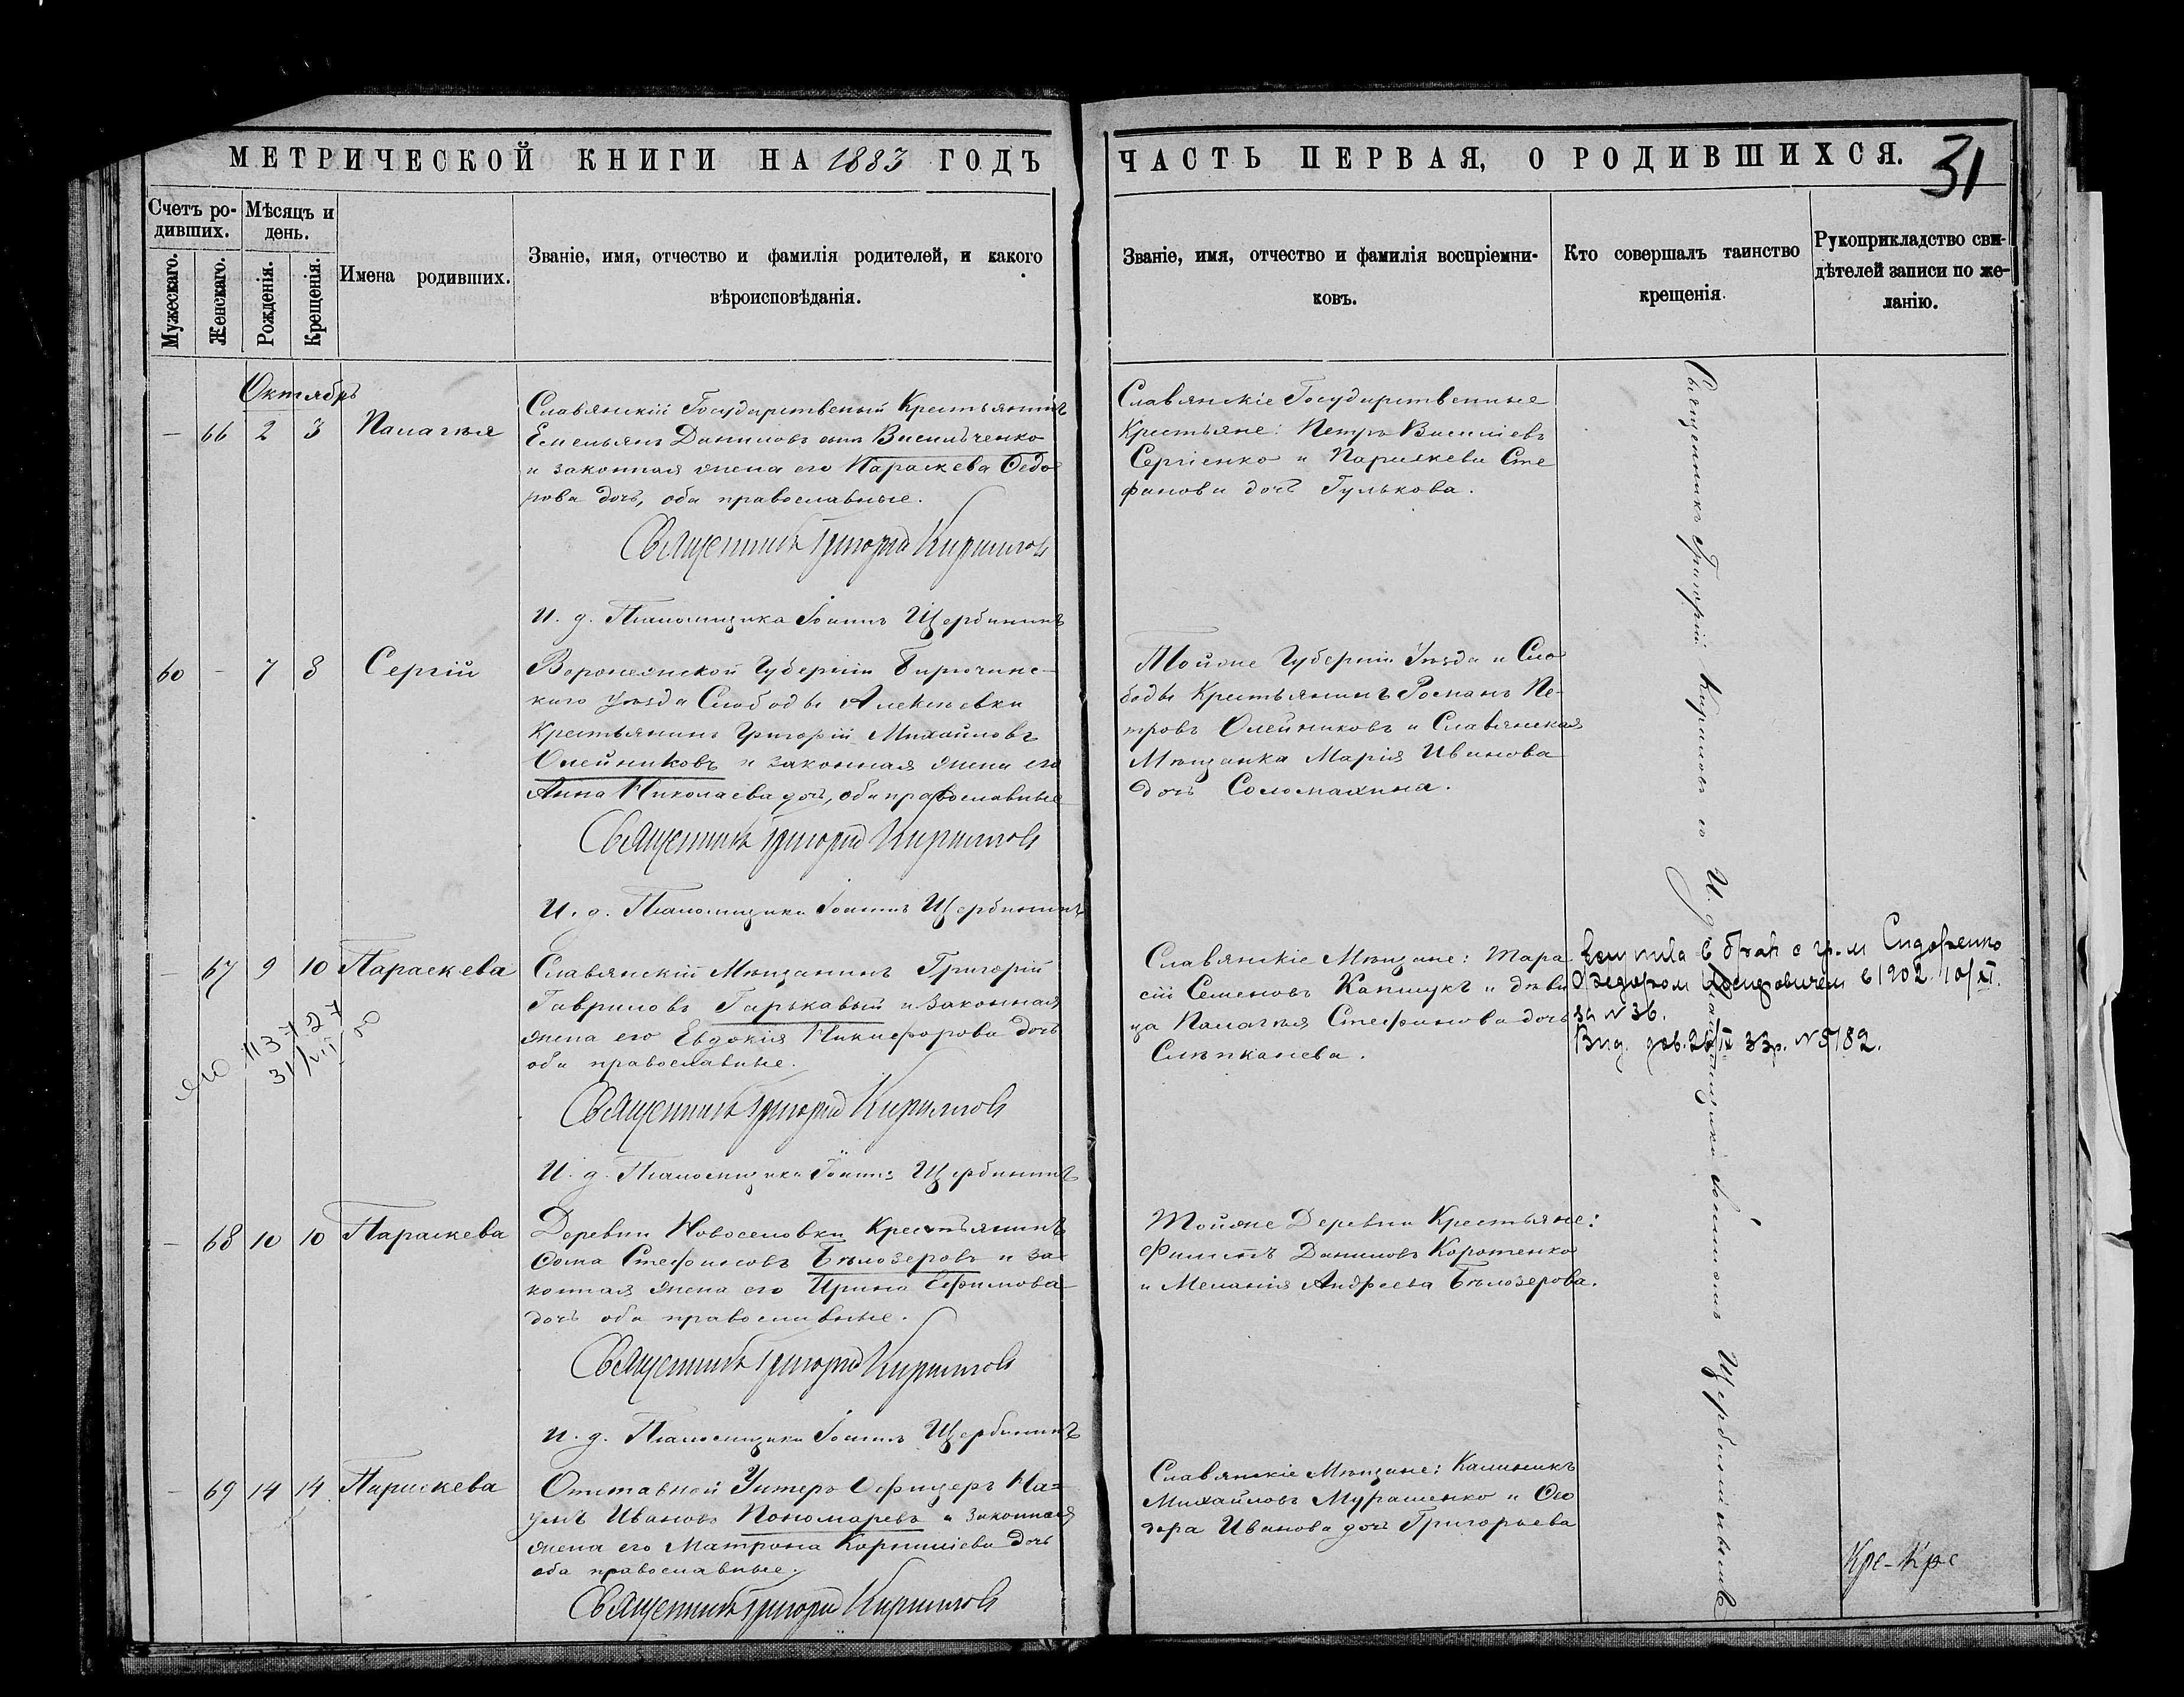 МЕТРИЧЕСКОЙ КНИГИ НА 1883 ГОДЪ
ЧАСТЬ ПЕРВАЯ, О РОДИВШИХСЯ.
31
Счетъ ро-
дивших.
Мѣсяцъ и
день.
Мужескаго.
Женскаго.
Рожденія.
Крещенія.
Имена родивших.
Званіе, имя, отчество и фамилія родителей, и какого
вѣроисповѣданія.
Званіе, имя, отчество и фамилія воспріемни-
ковъ.
Кто совершалъ таинство
крещенія.
Рукоприкладство сви-
дѣтелей записи по же-
ланію.
Октябрь
— 66 2 3 Палагѣя
Славянскій Государственый Крестьянинъ
Емельянъ Даниловъ сынъ Васильченко
и законная жена его Параскева Ѳедо
рова дочь, оба православные.
Священникъ Григорій Кириловъ
И. д. Псаломщика Іоаннъ Щербининъ
Славянскіе Государственные
Крестьяне: Петръ Василіевъ
Сергіенко и Параскева Сте
фанова дочь Гулькова.
60 — 7 8 Сергій
Воронежской Губерніи Бирючинс-
каго уѣзда Слободы Алексѣевки
Крестьянинъ Григорій Михайловъ
Олейниковъ и законная жена его
Анна Николаева дочь, оба православные
Священникъ Григорій Кириловъ
И. д. Псаломщика Іоаннъ Щербининъ
Тойже Губерніи Уѣзда и Сло
боды Крестьянинъ Романъ Пе-
тровъ Олейниковъ и Славянская
Мѣщанка Марія Иванова
дочь Соломахина.
— 67 9 10 Параскева
Славянскій Мѣщанинъ Григорій
Гавриловъ Гарькавый и законная
жена его Евдокія Никифорова дочь
оба православные.
Священникъ Григорій Кириловъ
И. д. Псаломщика Іоаннъ Щербининъ
Славянскіе Мѣщане: Тара
сій Семеновъ Капшукъ и дѣви
ца Палагѣя Стефанова дочь
Слѣпканева.
Вступила в брак с гр-м Сидоренко
Федором Иосифовичем в 1902 10/XI.
за №36.
— 68 10 10 Параскева
Деревни Новоселовки Крестьянинъ
Ѳома Стефановъ Бѣлозеровъ и за-
конная жена его Ирина Ефимова
дочь оба православные.
Священникъ Григорій Кириловъ
И. д. Псаломщика Іоаннъ Щербининъ
Тойже Деревни Крестьяне:
Филипъ Даниловъ Коротенко
и Меланія Андреева Бѣлозерова.
— 69 14 14 Параскева
Отставной Унтеръ Офицеръ На-
умъ Ивановъ Пономаревъ и законная
жена его Матрона Корниліева дочь
оба православные.
Священникъ Григорій Кириловъ
Славянскіе Мѣщане: Калиникъ
Михайловъ Мурашенко и Ѳео
дора Иванова дочь Григорьева
Священникъ Григорій Кириловъ со И. д. Псаломщика Іоанномъ Щербининымъ